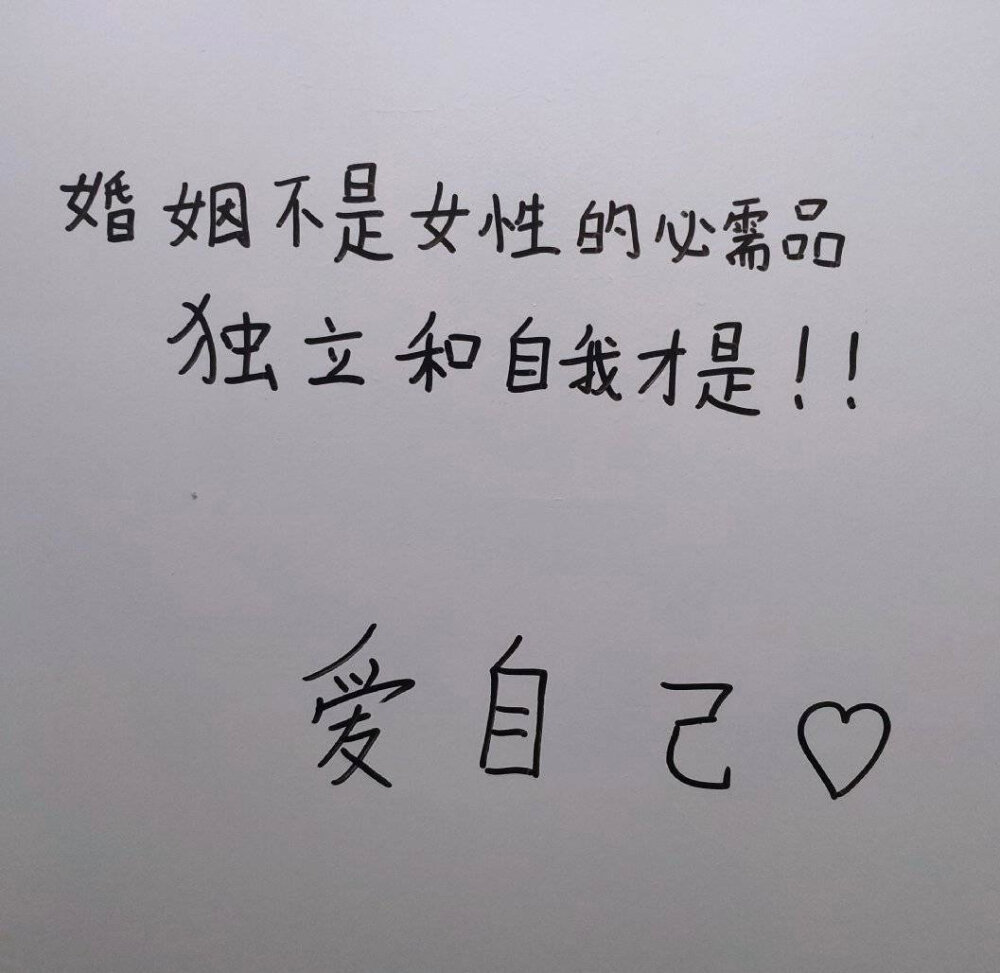 婚姻不是女性的必需品
独立和自我才是!!
爱自己♡